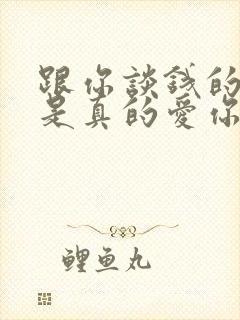 跟你談錢的
是真的愛你
鲤鱼丸